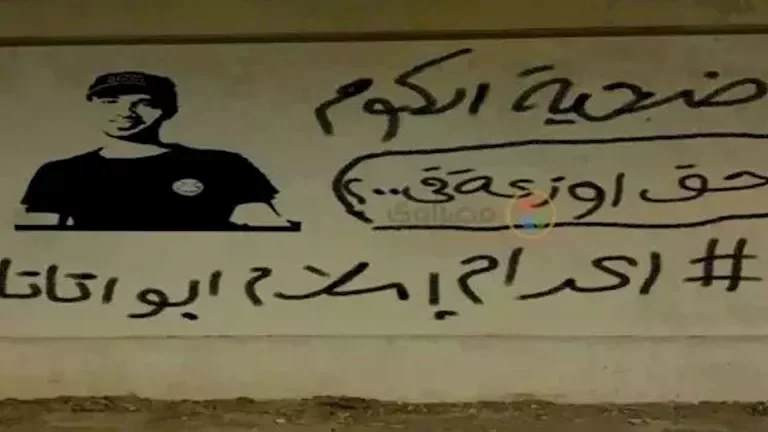 ضحية الكوم
حق اوزعة فى..؟
مصراوي
# اعدام إسلام ابو اتاتا